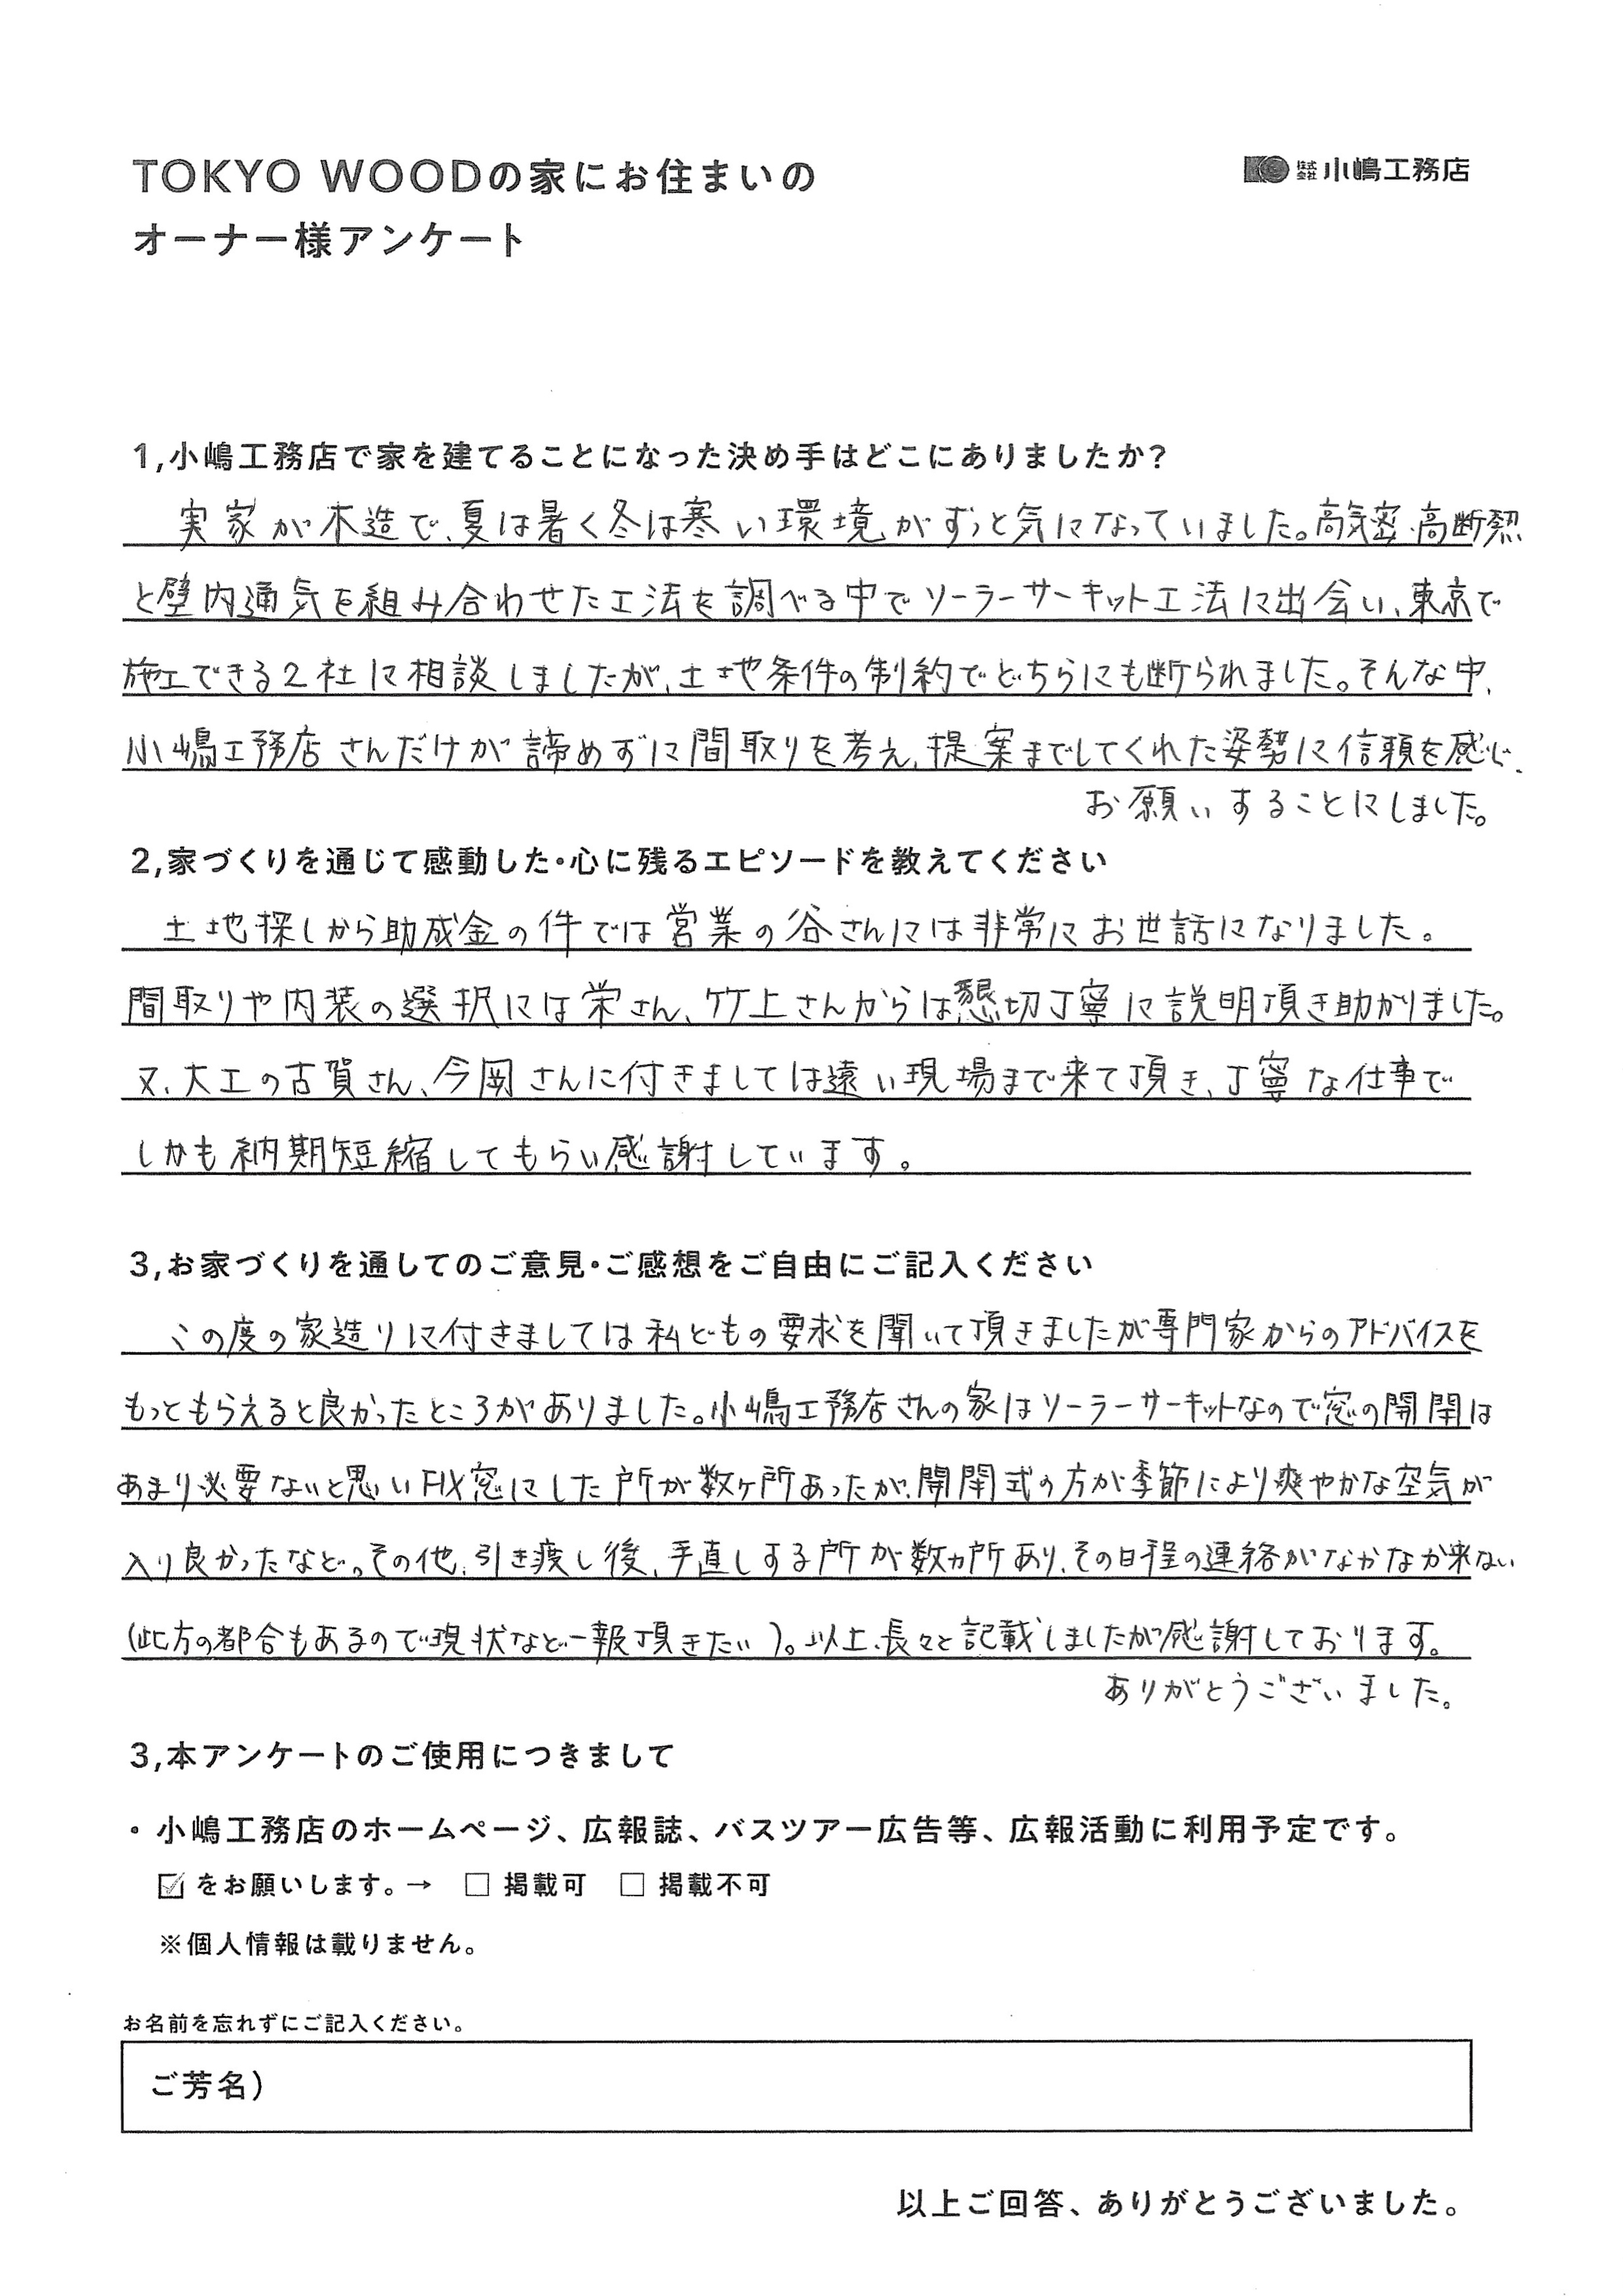 TOKYO WOODの家にお住まいの
オーナー様アンケート
株式会社 小嶋工務店
1,小嶋工務店で家を建てることになった決め手はどこにありましたか?
実家が木造で、夏は暑く冬は寒い環境がずっと気になっていました。高気密・高断熱
と壁内通気を組み合わせた工法を調べる中でソーラーサーキット工法に出会い、東京で
施工できる2社に相談しましたが、土地条件の制約でどちらにも断られました。そんな中、
小嶋工務店さんだけが諦めずに間取りを考え、提案までしてくれた姿勢に信頼を感じ、
お願いすることにしました。
2,家づくりを通じて感動した・心に残るエピソードを教えてください
土地探しから助成金の件では営業の谷さんには非常にお世話になりました。
間取りや内装の選択には栄さん、竹上さんからは懇切丁寧に説明頂き助かりました。
又、大工の古賀さん、今岡さんに付きましては遠い現場まで来て頂き、丁寧な仕事で
しかも納期短縮してもらい感謝しています。
3,お家づくりを通してのご意見・ご感想をご自由にご記入ください
この度の家造りに付きましては私どもの要求を聞いて頂きましたが専門家からのアドバイスを
もっともらえると良かったところがありました。小嶋工務店さんの家はソーラーサーキットなので窓の開閉は
あまり必要ないと思いFIX窓にした所が数ヶ所あったが、開閉式の方が季節により爽やかな空気が
入り良かったなど。その他、引き渡し後、手直しする所が数ヵ所あり、その日程の連絡がなかなか来ない
(此方の都合もあるので現状など一報頂きたい)。以上、長々と記載しましたが感謝しております。
ありがとうございました。
3,本アンケートのご使用につきまして
・小嶋工務店のホームページ、広報誌、バスツアー広告等、広報活動に利用予定です。
☑をお願いします。→ □ 掲載可 □ 掲載不可
※個人情報は載りません。
お名前を忘れずにご記入ください。
ご芳名)
以上ご回答、ありがとうございました。